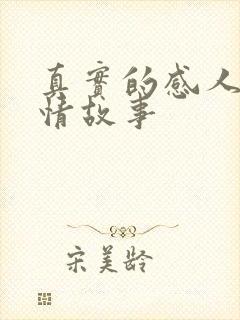 真實的感人
情故事
宋美齡